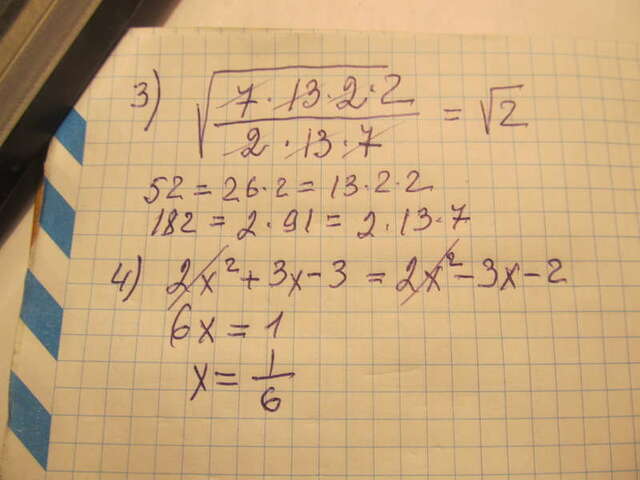 3) √(7·13·2·2 / 2·13·7) = √2
52 = 26·2 = 13·2·2
182 = 2·91 = 2·13·7
4) 2x² + 3x - 3 = 2x² - 3x - 2
6x = 1
x = 1/6